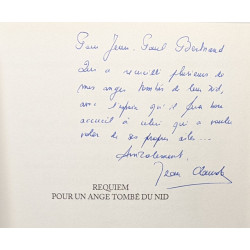 Pour Jean-Paul Bertrand
Qui a recueilli plusieurs de
mes anges tombés de leur nid,
avec l'espoir qu'il fera bon
accueil à celui qui a voulu
voler de ses propres ailes...
Amicalement.
Jean Claude
REQUIEM
POUR UN ANGE TOMBÉ DU NID